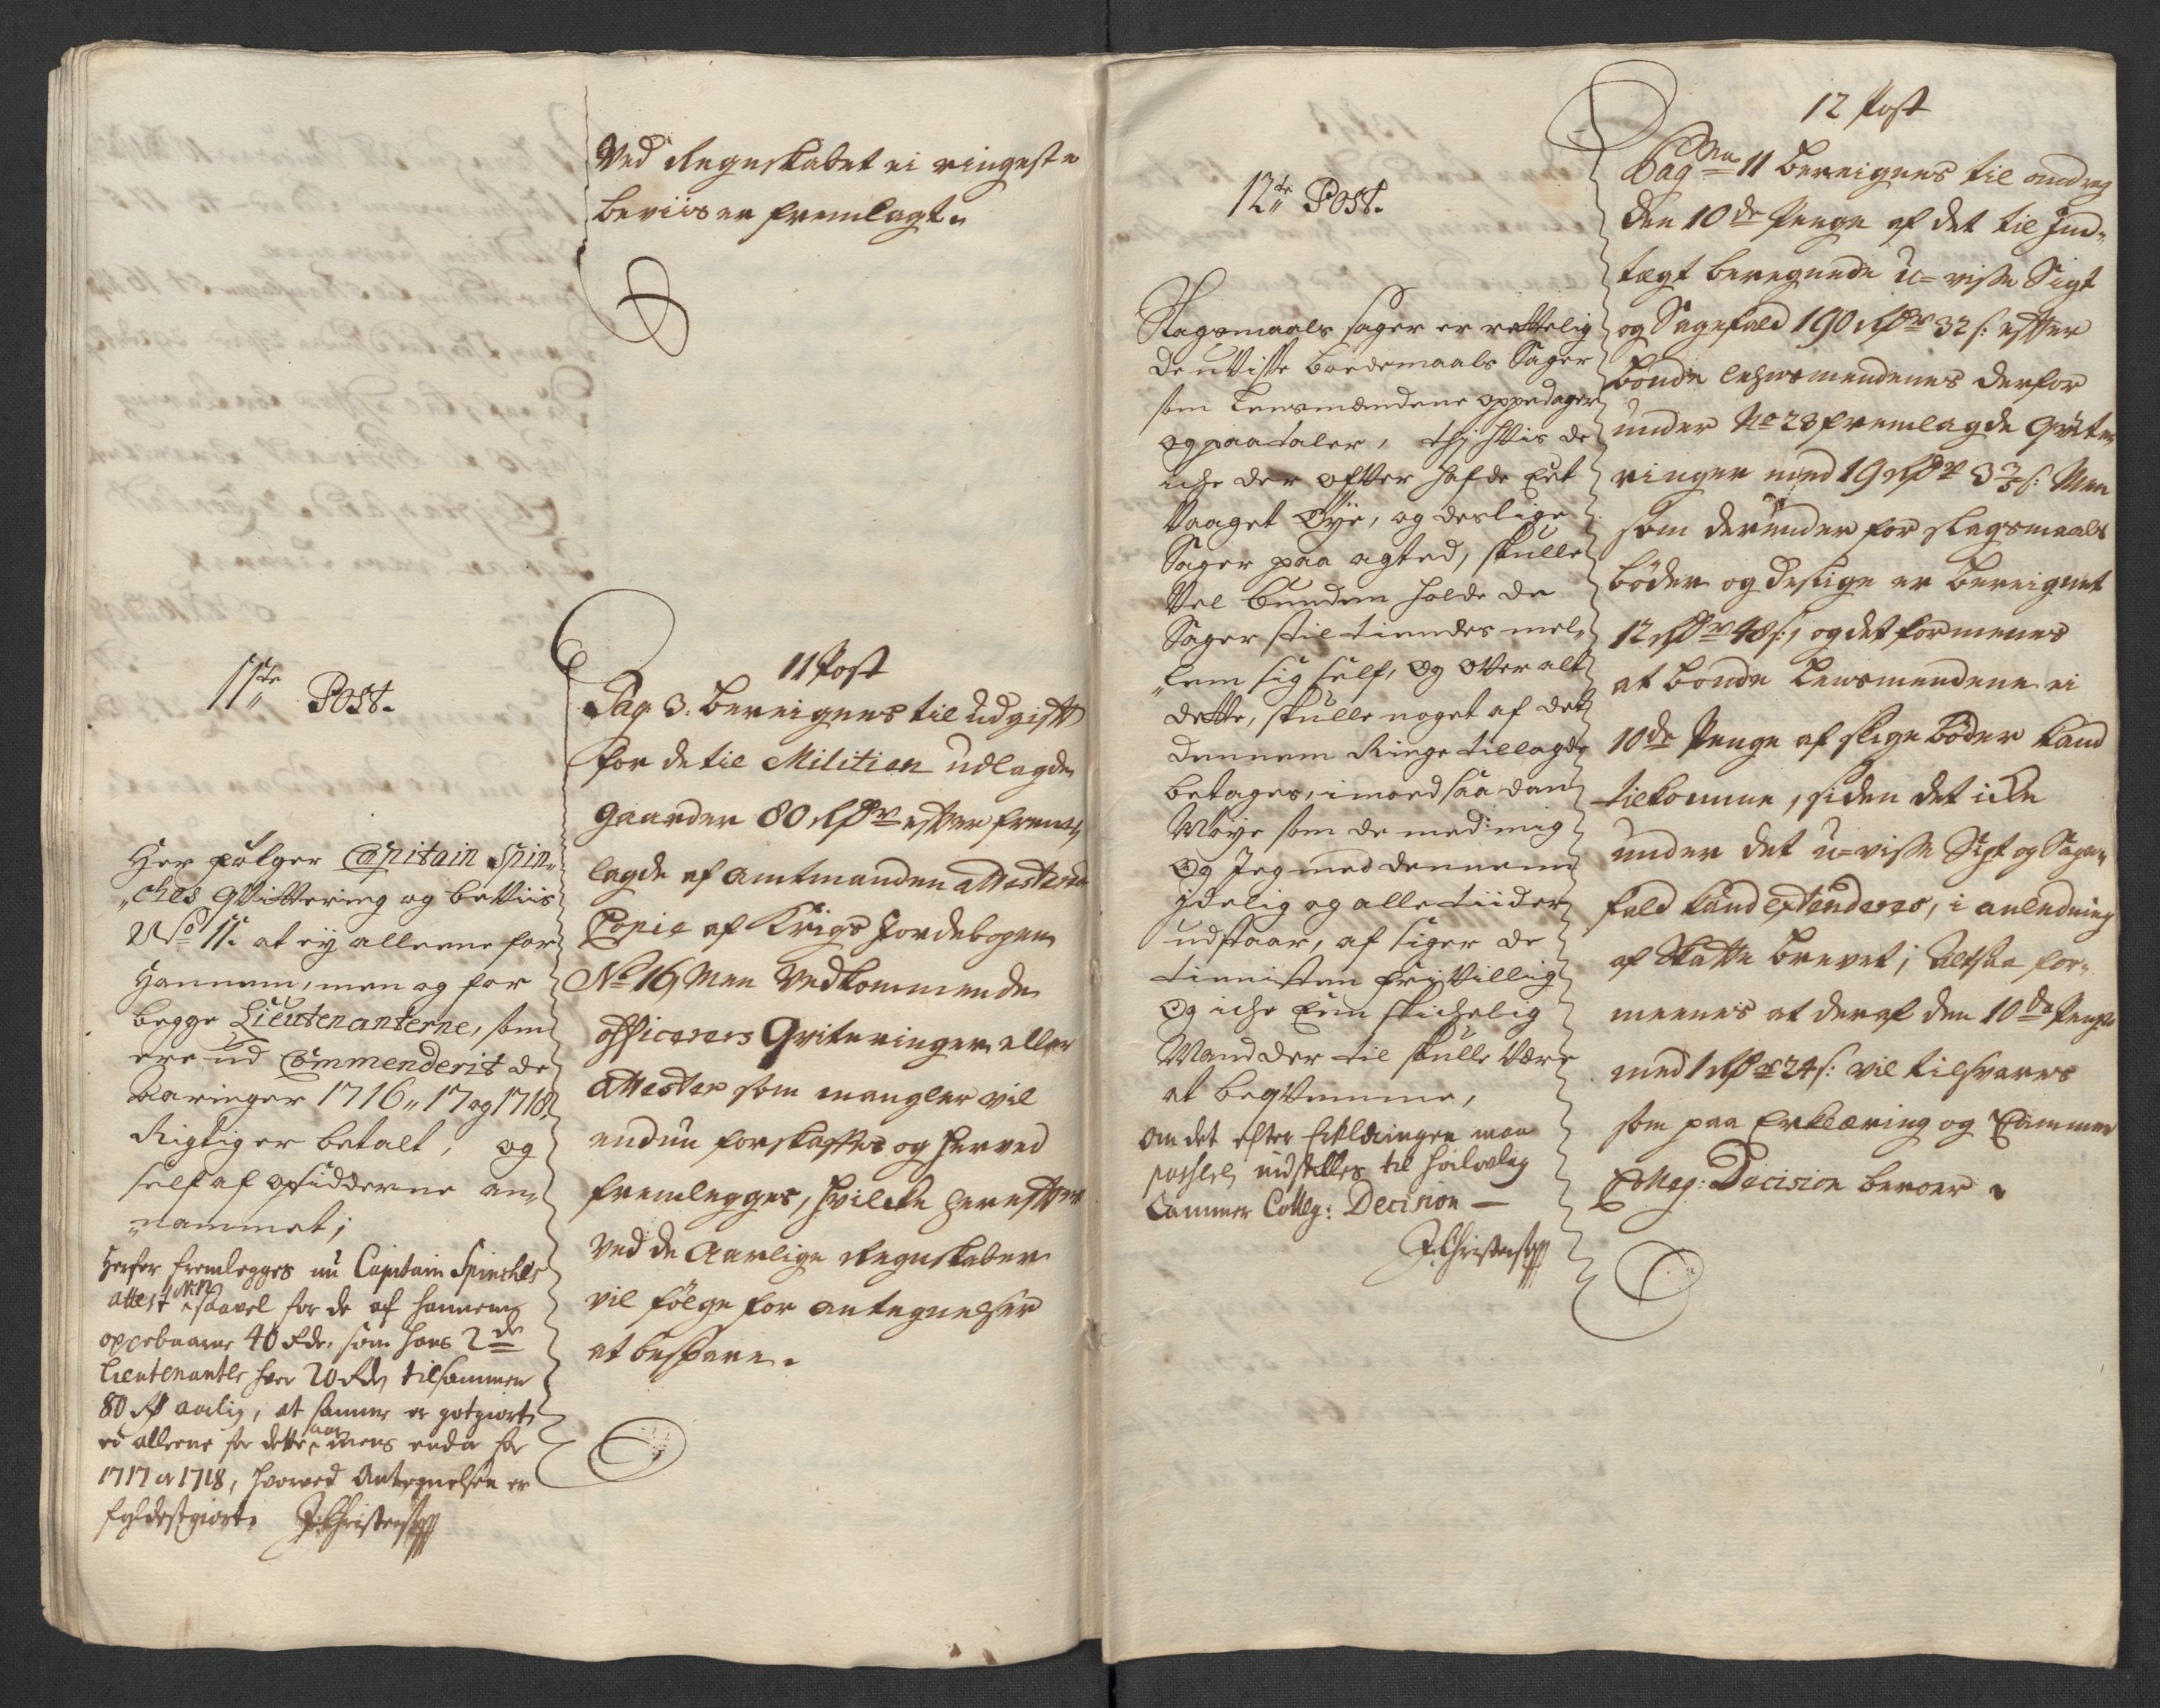 Ved Regnskabet ei ringeste
beviis er fremlagt.
11te Post.
Her følger Capitain Spin-
chels Qvittering og beviis
No 11. at ey alleene for
Hannem, men og for
begge Lieutenanterne, som
ere ud Commenderit de
Aaringer 1716, 17 og 1718
Rigtig er betalt, og
self af opsidderne an-
nammet;
Herfor fremlegges nu Capitain Spinchels
attest saavel for de af hannem
oppebaarne 40 Rdr, som hans 2de
Lieutenanter hver 20 Rdr tilsammen
80 Rdr aarlig, at samme er gotgiort
ei alleene for dette aar, mens endog for
1717 og 1718, hvorved Antegnelsen er
fyldestgiort. Christensen
11 Post
Pag 3. bereignes til udgift
for de til Militien udlagde
gaarder 80 Rdr efter frem-
lagde af amtmanden attesterede
Copie af Krigs Jordebogen
No 16, Men Vedkommende
officerers Qviteringer eller
attester som mangler vil
endnu forskaffes og herved
fremlegges, hvilcke herefter
ved de Aarlige Regnskaber
vil følge for antegnelser
at bespare.
12te Post.
Slagsmaals sager er rettelig
de uvisse bødemaals Sager
som Lensmændene oppedager
og paataler, thj hvis de
iche der efter hafde Eet
Vaaget Øye, og deslige
Sager paa agted, skulle
Vel bunden holde de
Sager stiltiendes mel-
lem sig self, og over alt
dette, skulle noget af det
dennem Ringe tillagde
betages, imoed saadan
Møye som de med mig
og Jeg med dennem
jdelig og alle tiider
udstaar, af siger de
tienisten friivillig
og iche Een skichelig
Mand der til skulle være
at beqvemme,
Om det efter Erklæringen maa
passere, indstilles til høilovlig
Cammer Colleg: Decision —
Christensen
12 Post
Pagina 11 bereignes til andrag
den 10de Penge af det til Ind-
tægt beregnede u-visse Sigt
og Sagefald 190 Rdr 32 s: efter
bonde lehnsmendenes derfor
under No 28 fremlagde Qvite-
ringer med 19 Rdr 3 1/5 s: Men
som derunder for slagsmaals
bøder og deslige er bereignet
12 Rdr 48 s:, og det formenes
at bonde Lensmendene ei
10de Penge af slige bøder kand
tilkomme, siden det icke
under det u-visse Sigt og Sage-
fald kand extenderes, i anledning
af Skatte brevet; Altsaa for-
meenes at deraf den 10de Penge
med 1 Rdr 24 s: vil tilsvares
som paa Erklæring og Cammer
Colleg: Decision beroer.